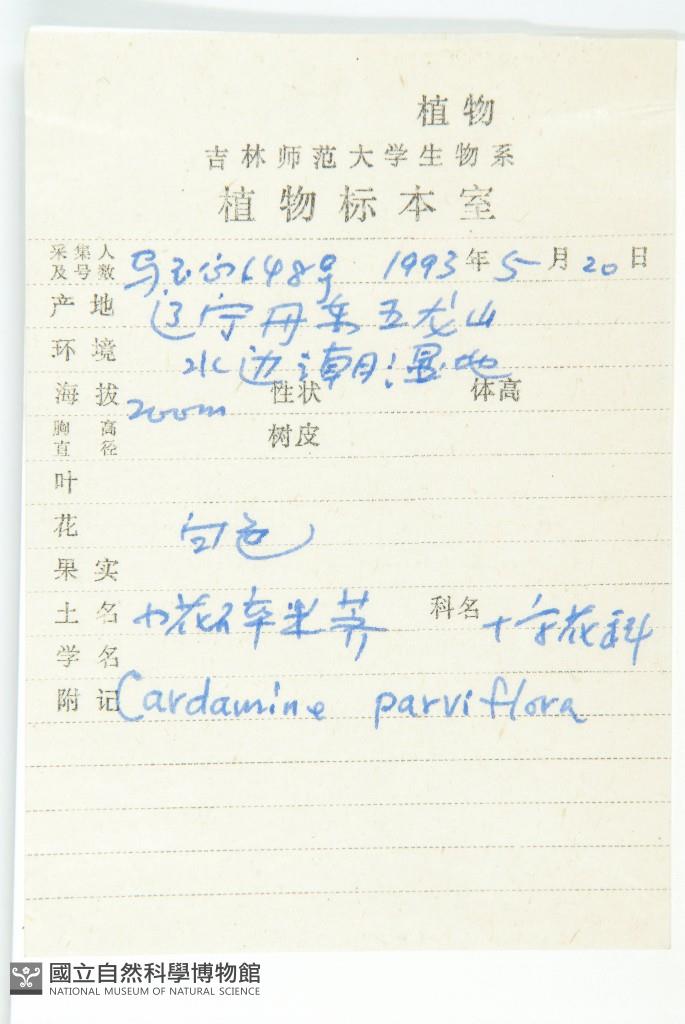 植物
吉林师范大学生物系
植物标本室
采集人及号数 648号 1993年5月20日
产地 辽宁丹东五龙山
环境 水边潮湿地
海拔 200m 性状 体高
胸高直径 树皮
叶
花 白色
果实
土名 小花碎米荠 科名 十字花科
学名
附记 Cardamine parviflora
國立自然科學博物館
NATIONAL MUSEUM OF NATURAL SCIENCE